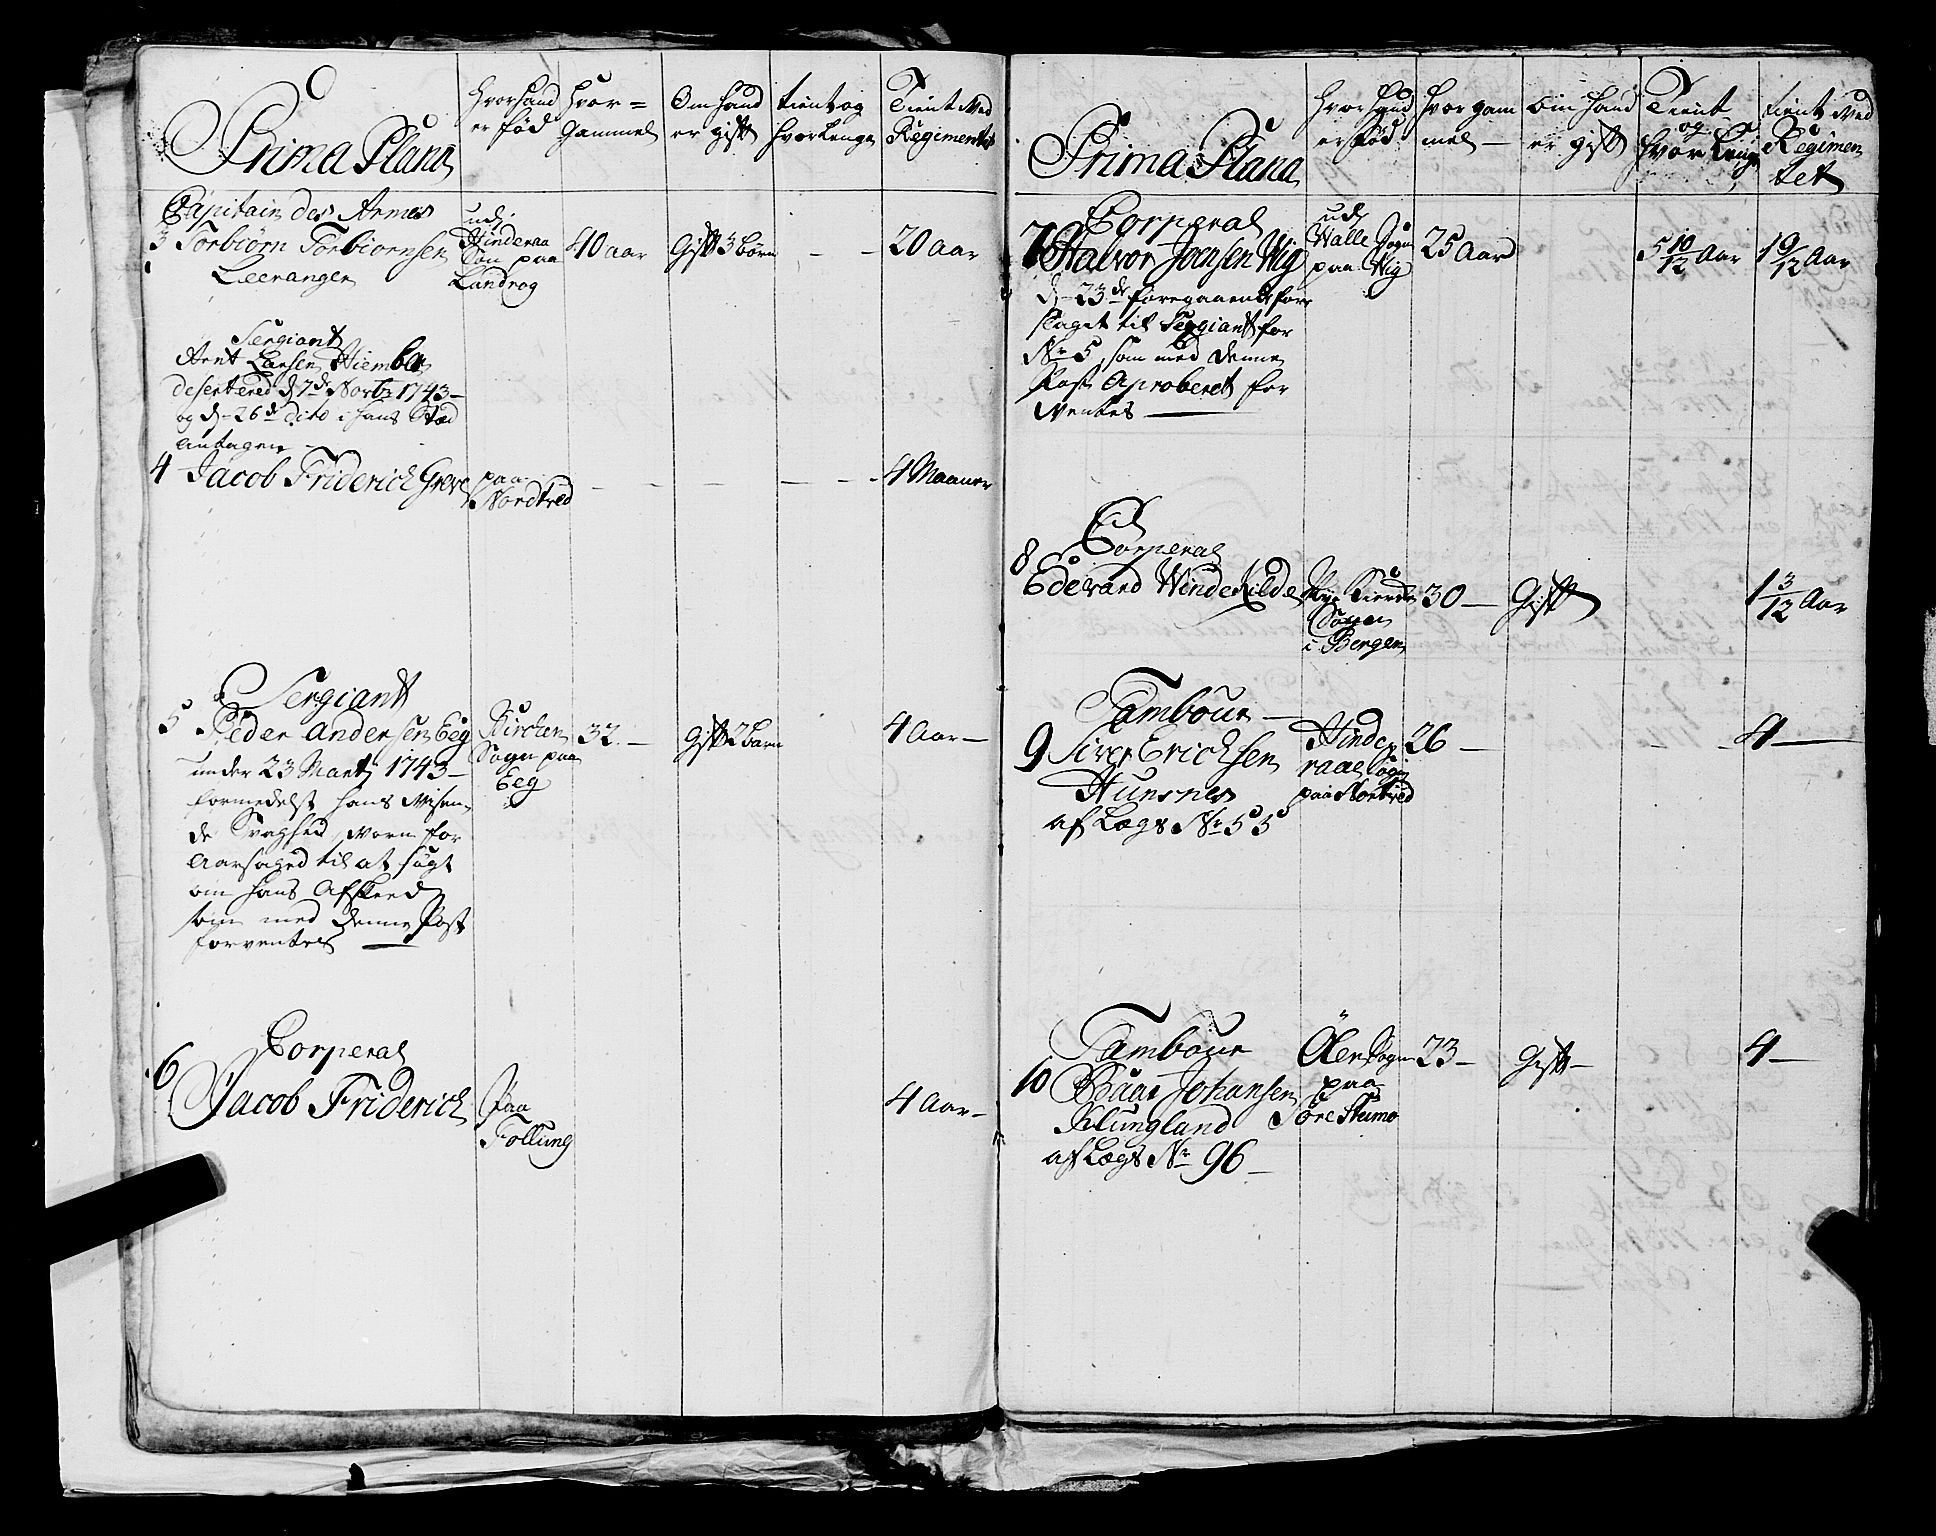 Prima Plana
Hvor hand
er fød
Hvor=
Gammel
Om hand
er gift
tient og
hvor Lenge
Tient Ved
Regimentet
Capitain des Armes
3 Torbiørn Torbiørnsen
Leerangen
udj
Hinderaa
Søn paa
Landrog
40 aar
Gift 3 børn
- -
20 aar
Sergiant
Arent Larsen Hiembla
desertered d 7de Novbr 1743 -
og d - 26de dito i hans Sted
antagen -
4 Jacob Friderich Greve
paa
Nordtred
- - - - -
4 Maaner
Sergiant
5 Peder Andersen Eeg
under 23 Martj 1743 -
formedelst hans Visen-
de Svaghed, vorn for
Aarsaged til at søgt
om hans Afskeed
som med denne Post
forventes
Kircken
Sogn paa
Eeg
32. -
gift 2 barn
4 Aar -
Corperal
6
Jacob Friderich
Paa
Follung
4 Aar -
Prima Plana
Hvor hand
er fød
Hvor gam
mel -
om hand
er gift
Tient
og
hvor Lenge
tient Ved
Regimen
tet
Corperal
7 Halvor Joensen Wig
d - 23de foregaaende fore
slaget til Sergiant for
No 5, som med denne
Post Aproberet for
ventes
udj
Walle Sogn
paa Wig
25 Aar
5 10/12 Aar
1 9/12 Aar
Corperal
8
Edevard Windekilde
Nye Kiercke
Sogn
i Bergen
30 -
Gift
1 3/12 Aar
Tambour -
9 Siver Erichsen
Hunsnes
af Lægs No 55
Hinde
raae Sogn
paa Nortred
26 -
- -
4 -
Tambour
10 Baar Johansen
Klungland
af Lægs No 96 -
Øler Sogn
paa
Søre Stumo
23 -
Gift -
4 -